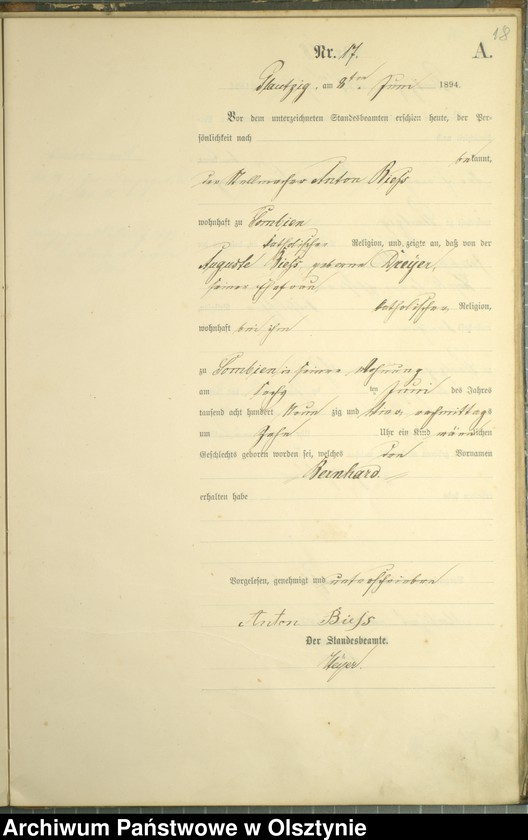 18
Nr. 17. A.
Plautzig, am 8ten Juni 1894.
Vor dem unterzeichneten Standesbeamten erschien heute, der Per-
sönlichkeit nach
bekannt,
der Anton Biess
wohnhaft zu Dombien
katholischer Religion, und zeigte an, daß von der
Auguste Biess, geborne Dreyer,
seiner Ehefrau
katholischer Religion,
wohnhaft bei ihm
zu Dombien in seiner Wohnung
am sechs ten Juni des Jahres
tausend acht hundert Neun zig und Vier, vormittags
um Zehn Uhr ein Kind männlichen
Geschlechts geboren worden sei, welches den Vornamen
Bernhard.
erhalten habe
Vorgelesen, genehmigt und unterschrieben
Anton Biess
Der Standesbeamte.
Archiwum Państwowe w Olsztynie